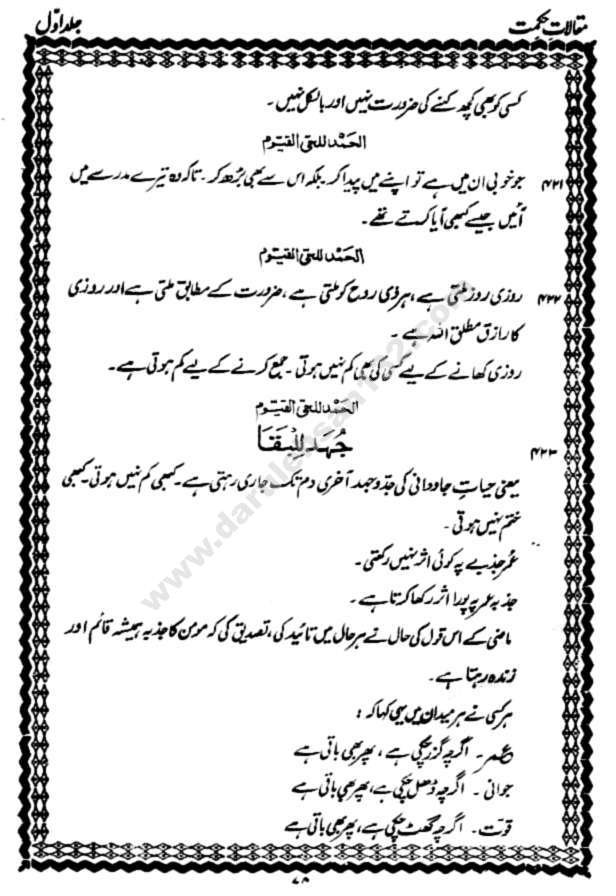 مقالاتِ حکمت
جلد اوّل
کسی کو بھی کچھ کہنے کی ضرورت نہیں اور بالکل نہیں۔
الحمد للحی القیوم
۴۲۱ جو خوبی ان میں ہے تو اپنے میں پیدا کر۔ بلکہ اس سے بھی بڑھ کر۔ تاکہ وہ تیرے مدرسے میں
آئیں جیسے کبھی آیا کرتے تھے۔
الحمد للحی القیوم
۴۲۲ روزی روز ملتی ہے، ہر ذی روح کو ملتی ہے، ضرورت کے مطابق ملتی ہے اور روزی
کا رازق مطلق اللہ ہے۔
روزی کھانے کے لیے کسی کی بھی کم نہیں ہوتی۔ جمع کرنے کے لیے کم ہوتی ہے۔
الحمد للحی القیوم
۴۲۳ جُہد لِلْبَقَا
یعنی حیاتِ جاودانی کی جدّوجہد آخری دم تک جاری رہتی ہے۔ کبھی کم نہیں ہوتی۔ کبھی
ختم نہیں ہوتی۔
عُمر جذبے پہ کوئی اثر نہیں رکھتی۔
جذبہ عمر پہ پورا اثر رکھا کرتا ہے۔
ماضی کے اس قول کی حال نے ہر حال میں تائید کی، تصدیق کی کہ مومن کا جذبہ ہمیشہ قائم اور
زندہ رہتا ہے۔
ہر کسی نے ہر میدان میں یہی کہا کہ:
عمر۔ اگرچہ گزر چکی ہے، پھر بھی باقی ہے
جوانی۔ اگرچہ ڈھل چکی ہے، پھر بھی باقی ہے
قوّت۔ اگرچہ گھٹ چکی ہے، پھر بھی باقی ہے